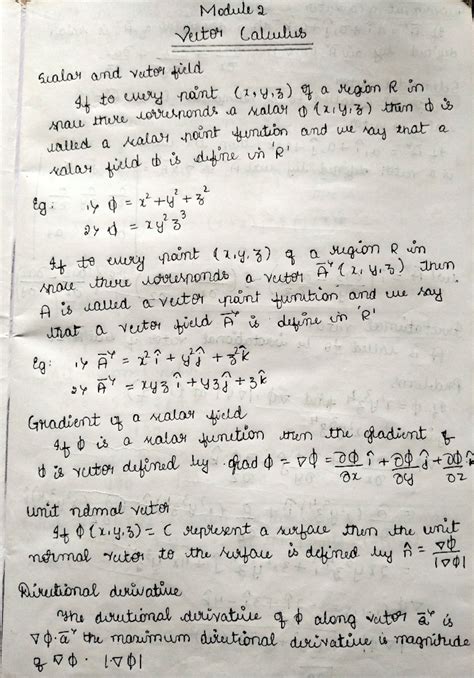 Module 2
Vector Calculus
Scalar and vector field
If to every point (x, y, z) of a region R in
space there corresponds a scalar ϕ(x, y, z) then ϕ is
called a scalar point function and we say that a
scalar field ϕ is define in 'R'
Eg: 1) ϕ = x² + y² + z²
2) ϕ = xy²z³
If to every point (x, y, z) of a region R in
space there corresponds a vector A⃗ (x, y, z) Then
A is called a vector point function and we say
that a vector field A⃗ is define in 'R'
Eg: 1) A⃗ = x²î + y²ĵ + z²k̂
2) A⃗ = xyzî + yzĵ + zk̂
Gradient of a scalar field
If ϕ is a scalar function then the gladient of
ϕ is vector defined by grad ϕ = ∇ϕ = ∂ϕ/∂x î + ∂ϕ/∂y ĵ + ∂ϕ/∂z k̂
unit normal vector
If ϕ(x, y, z) = C represent a surface then the unit
normal vector to the surface is defined by n̂ = ∇ϕ/|∇ϕ|
Directional derivative
The directional derivative of ϕ along vector a⃗ is
∇ϕ·a⃗ the maximum directional derivative is magnitude
of ∇ϕ · |∇ϕ|